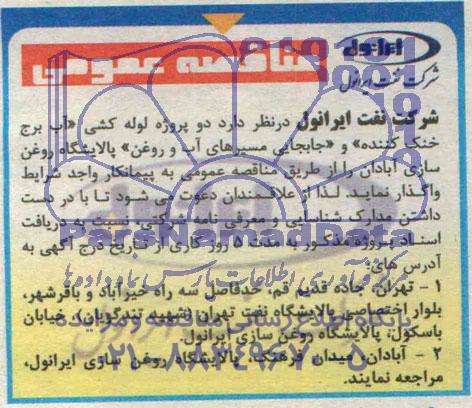 ایرانول
شرکت نفت ایرانول
مناقصه عمومی
شرکت نفت ایرانول درنظر دارد دو پروژه لوله کشی «آب برج
خنک کننده» و «جابجایی مسیرهای آب و روغن» پالایشگاه روغن
سازی آبادان را از طریق مناقصه عمومی به پیمانکار واجد شرایط
واگذار نماید. لذا از علاقمندان دعوت می شود تا با در دست
داشتن مدارک شناسایی و معرفی نامه شرکتی، نسبت به دریافت
اسناد پروژه مذکور به مدت ۵ روز کاری از تاریخ درج آگهی به
آدرس های:
۱ - تهران، جاده قدیم قم، حدفاصل سه راه خیرآباد و باقرشهر،
بلوار اختصاصی پالایشگاه نفت تهران (شهید تندگویان)، خیابان
باسکول، پالایشگاه روغن سازی ایرانول.
۲ - آبادان، میدان فرهنگ، پالایشگاه روغن سازی ایرانول،
مراجعه نمایند.
ParsNamadData
مرکز فرآوری اطلاعات پارس نماد داده ها
پایگاه اطلاع رسانی مناقصه و مزایده
۰۲۱-۸۸۳۴۹۶۷۰-۵